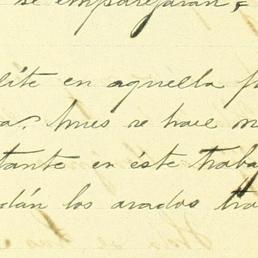 se emparejaran,
lite en aquella
a. Pues se hace
tante en éste traba
dán los arados tra